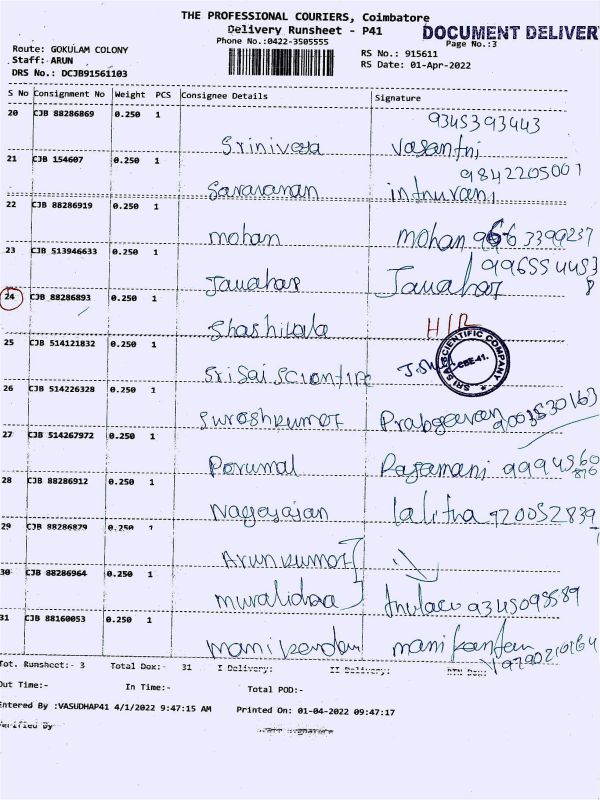 THE PROFESSIONAL COURIERS, Coimbatore
Delivery Runsheet - P41
DOCUMENT DELIVER
Phone No.:0422-3505555
Page No.:3
Route: GOKULAM COLONY
Staff: ARUN
DRS No.: DCJB91561103
RS No.: 915611
RS Date: 01-Apr-2022
S No Consignment No Weight PCS Consignee Details Signature
20 CJB 88286869 0.250 1 9345393443
Vasantni
21 CJB 154607 0.250 1 9842205001
Saravanan
22 CJB 88286919 0.250 1
mohan mohan 9663399237
23 CJB 513946633 0.250 1
Jauahar Jauahar
24 CJB 88286893 0.250 1
Shashikala
25 CJB 514121832 0.250 1
SRI SAI SCIENTIFIC COMPANY
CBE-41.
26 CJB 514226328 0.250 1
Sureshkumar 9003530163
27 CJB 514267972 0.250 1
Perumal Rajamani
28 CJB 88286912 0.250 1
Nagarajan lalitha 920052839
29 CJB 88286879 0.250 1
Arunkumar
30 CJB 88286964 0.250 1
9345098589
31 CJB 88160053 0.250 1
Tot. Runsheet:- 3 Total Dox:- 31 I Delivery: II Delivery:
Out Time:- In Time:- Total POD:-
Entered By :VASUDHAP41 4/1/2022 9:47:15 AM Printed On: 01-04-2022 09:47:17
Verified By